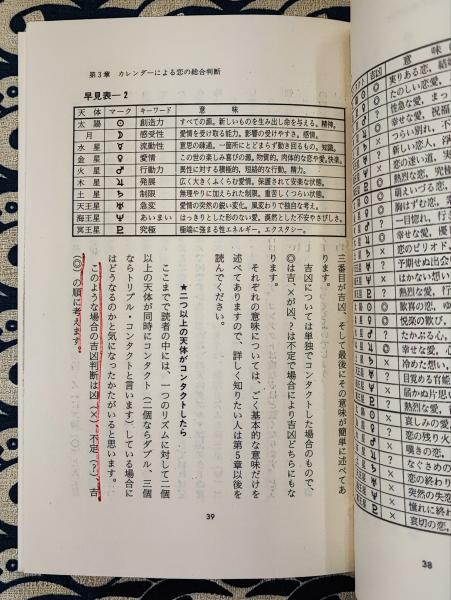 第3章 カレンダーによる恋の総合判断
早見表―2
天体 マーク キーワード 意味
太陽 ☉ 創造力 すべての源。新しいものを生み出し命を与える。精神。
月 ☽ 感受性 愛情を受け取る能力。影響の受けやすさ。感情。
水星 ☿ 流動性 意思の疎通。一箇所にとどまらず動き回るもの。知識。
金星 ♀ 愛情 この世の楽しみ喜びの源。物質的。肉体的な恋や愛。快楽。
火星 ♂ 行動力 異性に対する積極的、短絡的な行動。精力。
木星 ♃ 発展 広く大きくふくらむ愛情。保護されて安楽な状態。
土星 ♄ 制限 無理やりに加えられた制限。重苦しくつらい状態。
天王星 ♅ 急変 愛情の突然の鋭い変化。風変わりで独自な考え。
海王星 ♆ あいまい はっきりとした形のない愛。漠然とした不安やさびしさ。
冥王星 ♇ 究極 極端に強まる性エネルギー。エクスタシー。
三番目が吉凶、そして最後にその意味が簡単に述べてあ
ります。
吉凶については単独でコンタクトした場合のもので、
◎は吉、×が凶、?は不定で場合により吉凶どちらにもな
ります。
それぞれの意味については、ごく基本的な意味だけを
述べてありますので、詳しく知りたい人は第5章以後を
読んでください。
★二つ以上の天体がコンタクトしたら
ここまでで読者の中には、一つのリズムに対して二個
以上の天体が同時にコンタクト(二個ならダブル、三個
ならトリプル・コンタクトと言います)している場合に
はどうなるのかと気になったかたがいると思います。
このような場合の吉凶判断は凶(×)、不定(?)、吉
(◎)の順に考えます。
39
吉凶 意味の
実りある恋。
たのしい恋愛。
性急な愛。
幸せな愛。
つらい別れ。
新しい恋人。
恋の迷い道。
萌えいづる恋。
胸はずむ恋。
一目惚れ。
幸せな愛。
熱烈な愛。
恋のピリオド。
予期せぬ出会
はかない想い
熱烈な愛。
歓喜の恋。
悦楽の歓び。
たかぶる心。
幸せな愛。
冷めた想い。
目覚める官能
届かぬ片思い
熱烈な愛。
哀しみの愛
恋の残り火
嘆きの恋。
なぐさめの
恋の終わり
突然の失恋
憧れに終わ
哀切の恋。
38